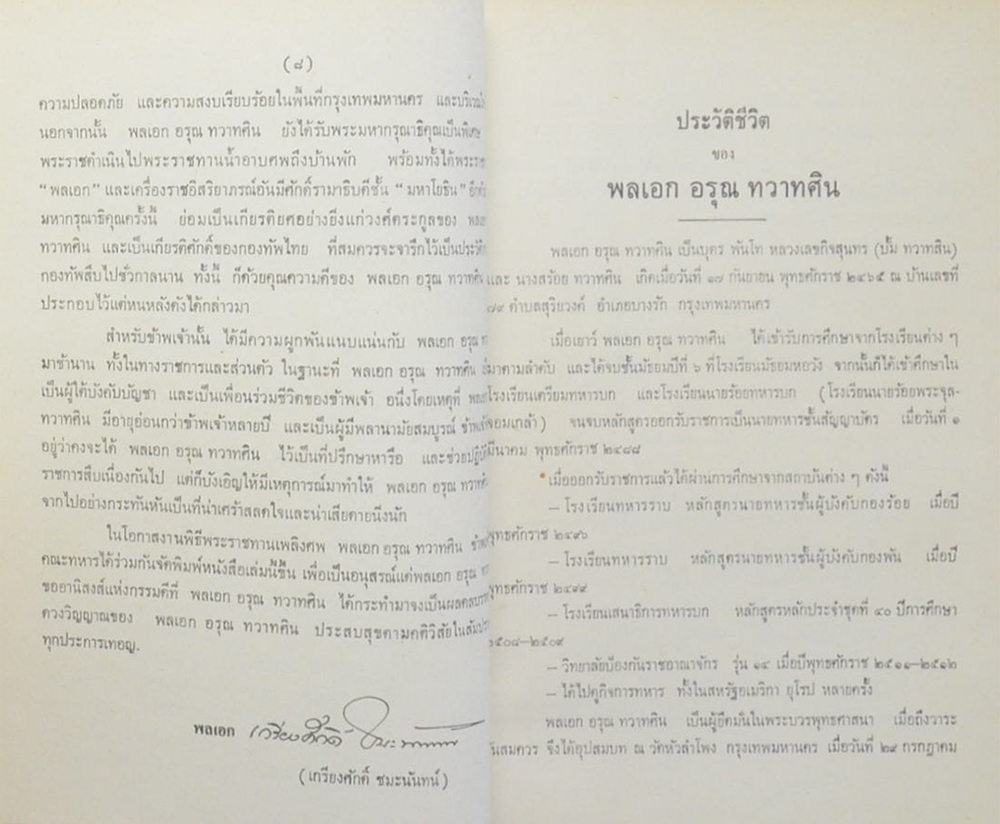 (๘)
ความปลอดภัย และความสงบเรียบร้อยในพื้นที่กรุงเทพมหานคร และบริเวณ
นอกจากนั้น พลเอก อรุณ ทวาทศิน ยังได้รับพระมหากรุณาธิคุณเป็นพิเศษ
พระราชดำเนินไปพระราชทานน้ำอาบศพถึงบ้านพัก พร้อมทั้งได้พระราช
“พลเอก” และเครื่องราชอิสริยาภรณ์อันมีศักดิ์รามาธิบดีชั้น “มหาโยธิน”
มหากรุณาธิคุณครั้งนี้ ย่อมเป็นเกียรติยศอย่างยิ่งแก่วงศ์ตระกูลของ พลเอก
ทวาทศิน และเป็นเกียรติศักดิ์ของกองทัพไทย ที่สมควรจะจารึกไว้เป็นประวัติ
กองทัพสืบไปชั่วกาลนาน ทั้งนี้ ก็ด้วยคุณความดีของ พลเอก อรุณ ทวาทศิน
ประกอบไว้แต่หนหลังดังได้กล่าวมา
สำหรับข้าพเจ้านั้น ได้มีความผูกพันแนบแน่นกับ พลเอก อรุณ
มาช้านาน ทั้งในทางราชการและส่วนตัว ในฐานะที่ พลเอก อรุณ ทวาทศิน
เป็นผู้ใต้บังคับบัญชา และเป็นเพื่อนร่วมชีวิตของข้าพเจ้า อนึ่งโดยเหตุที่ พลเอก
ทวาทศิน มีอายุอ่อนกว่าข้าพเจ้าหลายปี และเป็นผู้มีพลานามัยสมบูรณ์
อยู่ว่าคงจะได้ พลเอก อรุณ ทวาทศิน ไว้เป็นที่ปรึกษาหารือ และช่วยปฏิบัติ
ราชการสืบเนื่องกันไป แต่ก็บังเอิญให้มีเหตุการณ์มาทำให้ พลเอก อรุณ ทวาทศิน
จากไปอย่างกระทันหันเป็นที่น่าเศร้าสลดใจและน่าเสียดายยิ่งนัก
ในโอกาสงานพิธีพระราชทานเพลิงศพ พลเอก อรุณ ทวาทศิน
คณะทหารได้ร่วมกันจัดพิมพ์หนังสือเล่มนี้ขึ้น เพื่อเป็นอนุสรณ์แด่พลเอก อรุณ
ขออานิสงส์แห่งกรรมดีที่ พลเอก อรุณ ทวาทศิน ได้กระทำมาจงเป็นผลดลบรร
ดวงวิญญาณของ พลเอก อรุณ ทวาทศิน ประสบสุขตามคติวิสัยในสัมปราย
ทุกประการเทอญ.
พลเอก เกรียงศักดิ์ ชมะนันทน์
(เกรียงศักดิ์ ชมะนันทน์)
ประวัติชีวิต
ของ
พลเอก อรุณ ทวาทศิน
พลเอก อรุณ ทวาทศิน เป็นบุตร พันโท หลวงเลขกิจสุนทร (ปั้ม ทวาทสิน)
และ นางสร้อย ทวาทศิน เกิดเมื่อวันที่ ๑๗ กันยายน พุทธศักราช ๒๔๖๕ ณ บ้านเลขที่
๗๙ ตำบลสุริยวงศ์ อำเภอบางรัก กรุงเทพมหานคร
เมื่อเยาว์ พลเอก อรุณ ทวาทศิน ได้เข้ารับการศึกษาจากโรงเรียนต่าง ๆ
มาตามลำดับ และได้จบชั้นมัธยมปีที่ ๖ ที่โรงเรียนมัธยมหอวัง จากนั้นก็ได้เข้าศึกษาใน
โรงเรียนเตรียมทหารบก และโรงเรียนนายร้อยทหารบก (โรงเรียนนายร้อยพระจุล-
จอมเกล้า) จนจบหลักสูตรออกรับราชการเป็นนายทหารชั้นสัญญาบัตร เมื่อวันที่ ๑
มีนาคม พุทธศักราช ๒๔๘๘
เมื่อออกรับราชการแล้วได้ผ่านการศึกษาจากสถาบันต่าง ๆ ดังนี้
– โรงเรียนทหารราบ หลักสูตรนายทหารชั้นผู้บังคับกองร้อย เมื่อปี
พุทธศักราช ๒๔๙๖
– โรงเรียนทหารราบ หลักสูตรนายทหารชั้นผู้บังคับกองพัน เมื่อปี
พุทธศักราช ๒๔๙๙
– โรงเรียนเสนาธิการทหารบก หลักสูตรหลักประจำชุดที่ ๔๐ ปีการศึกษา
๒๕๐๘–๒๕๐๙
– วิทยาลัยป้องกันราชอาณาจักร รุ่น ๑๔ เมื่อปีพุทธศักราช ๒๕๑๑–๒๕๑๒
– ได้ไปดูกิจการทหาร ทั้งในสหรัฐอเมริกา ยุโรป หลายครั้ง
พลเอก อรุณ ทวาทศิน เป็นผู้ยึดมั่นในพระบวรพุทธศาสนา เมื่อถึงวาระ
อันสมควร จึงได้อุปสมบท ณ วัดหัวลำโพง กรุงเทพมหานคร เมื่อวันที่ ๒๙ กรกฎาคม